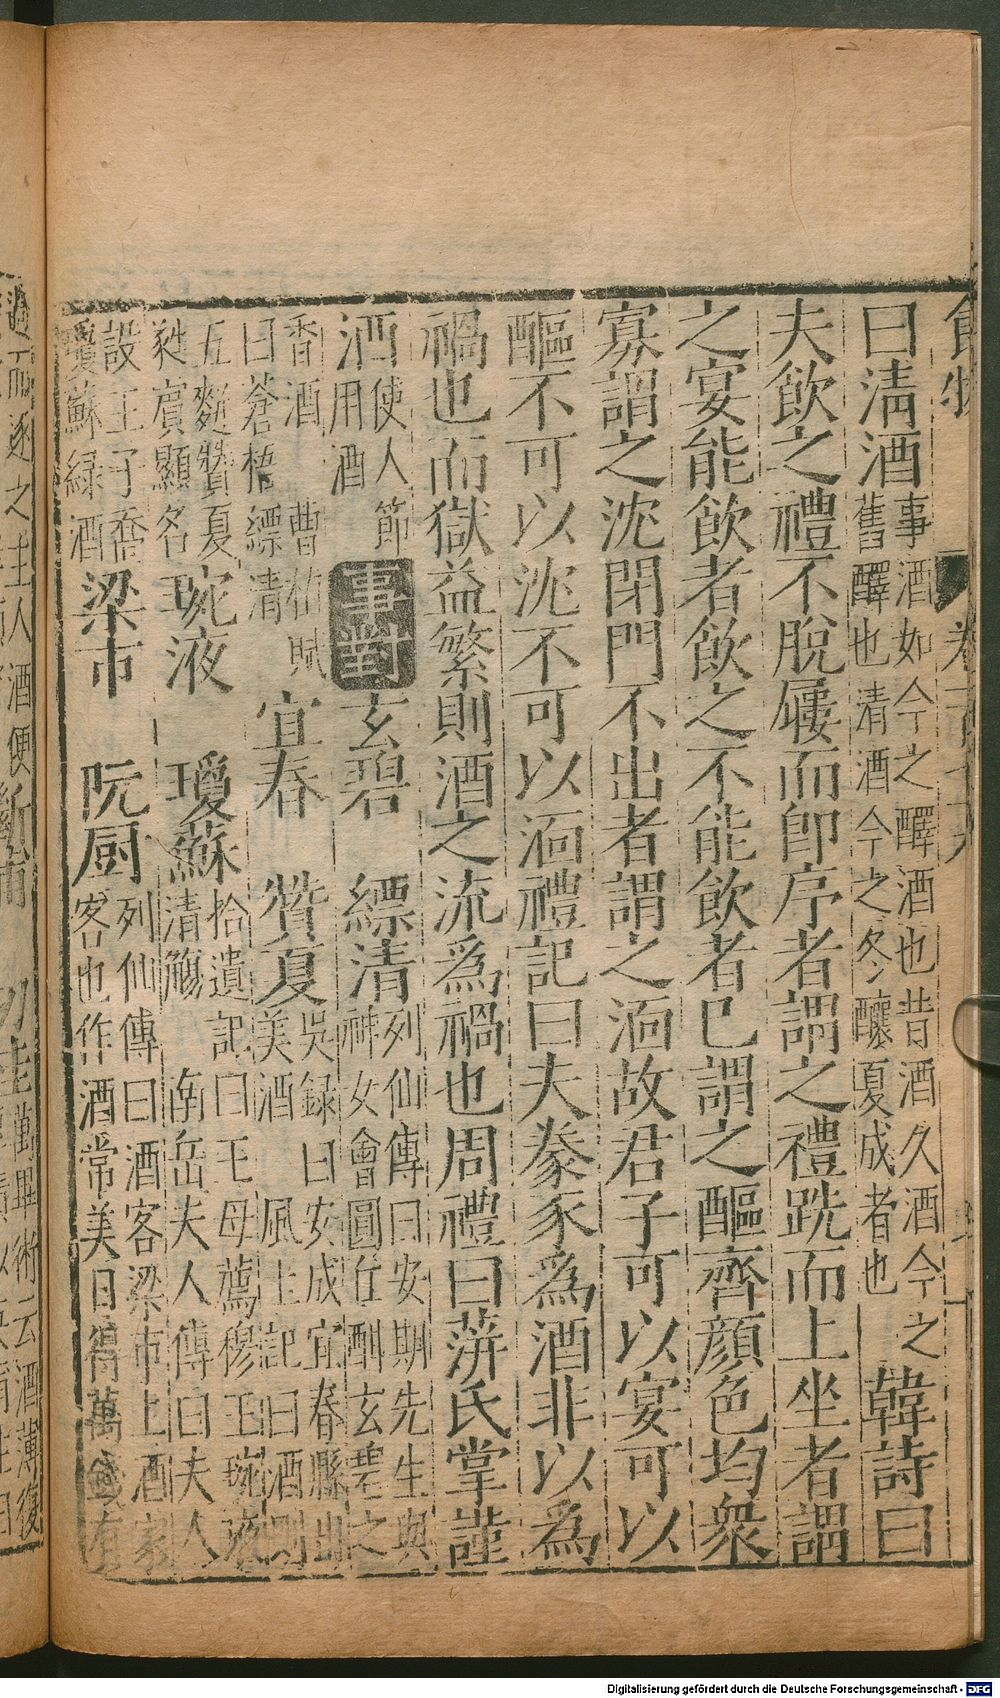 曰清酒事酒如今之醳酒也昔酒久酒今之舊醳也清酒今之冬釀夏成者也韓詩曰
夫飲之禮不脫屨而即序者謂之禮跣而上坐者謂
之宴能飲者飲之不能飲者已謂之醧齊顏色均衆
寡謂之沈閉門不出者謂之湎故君子可以宴可以
醧不可以沈不可以湎禮記曰夫豢豕為酒非以為
禍也而獄益繁則酒之流為禍也周禮曰萍氏掌謹
酒使人節用酒事對玄碧 縹清列仙傳曰安期先生與神女會圓丘酣玄碧之
香酒 曹植賦曰蒼梧縹清宜春 贊夏吳録曰安成宜春縣出美酒 風土記曰酒則
五麴贊夏 名琬液 瓊蘇拾遺記曰王母薦穆王琬液清觴 南岳夫人傳曰夫人
設王子喬瓊蘇緑酒梁市 阮厨列仙傳曰酒客梁市上酒家客也作酒常美日得萬錢有
Digitalisierung gefördert durch die Deutsche Forschungsgemeinschaft - DFG